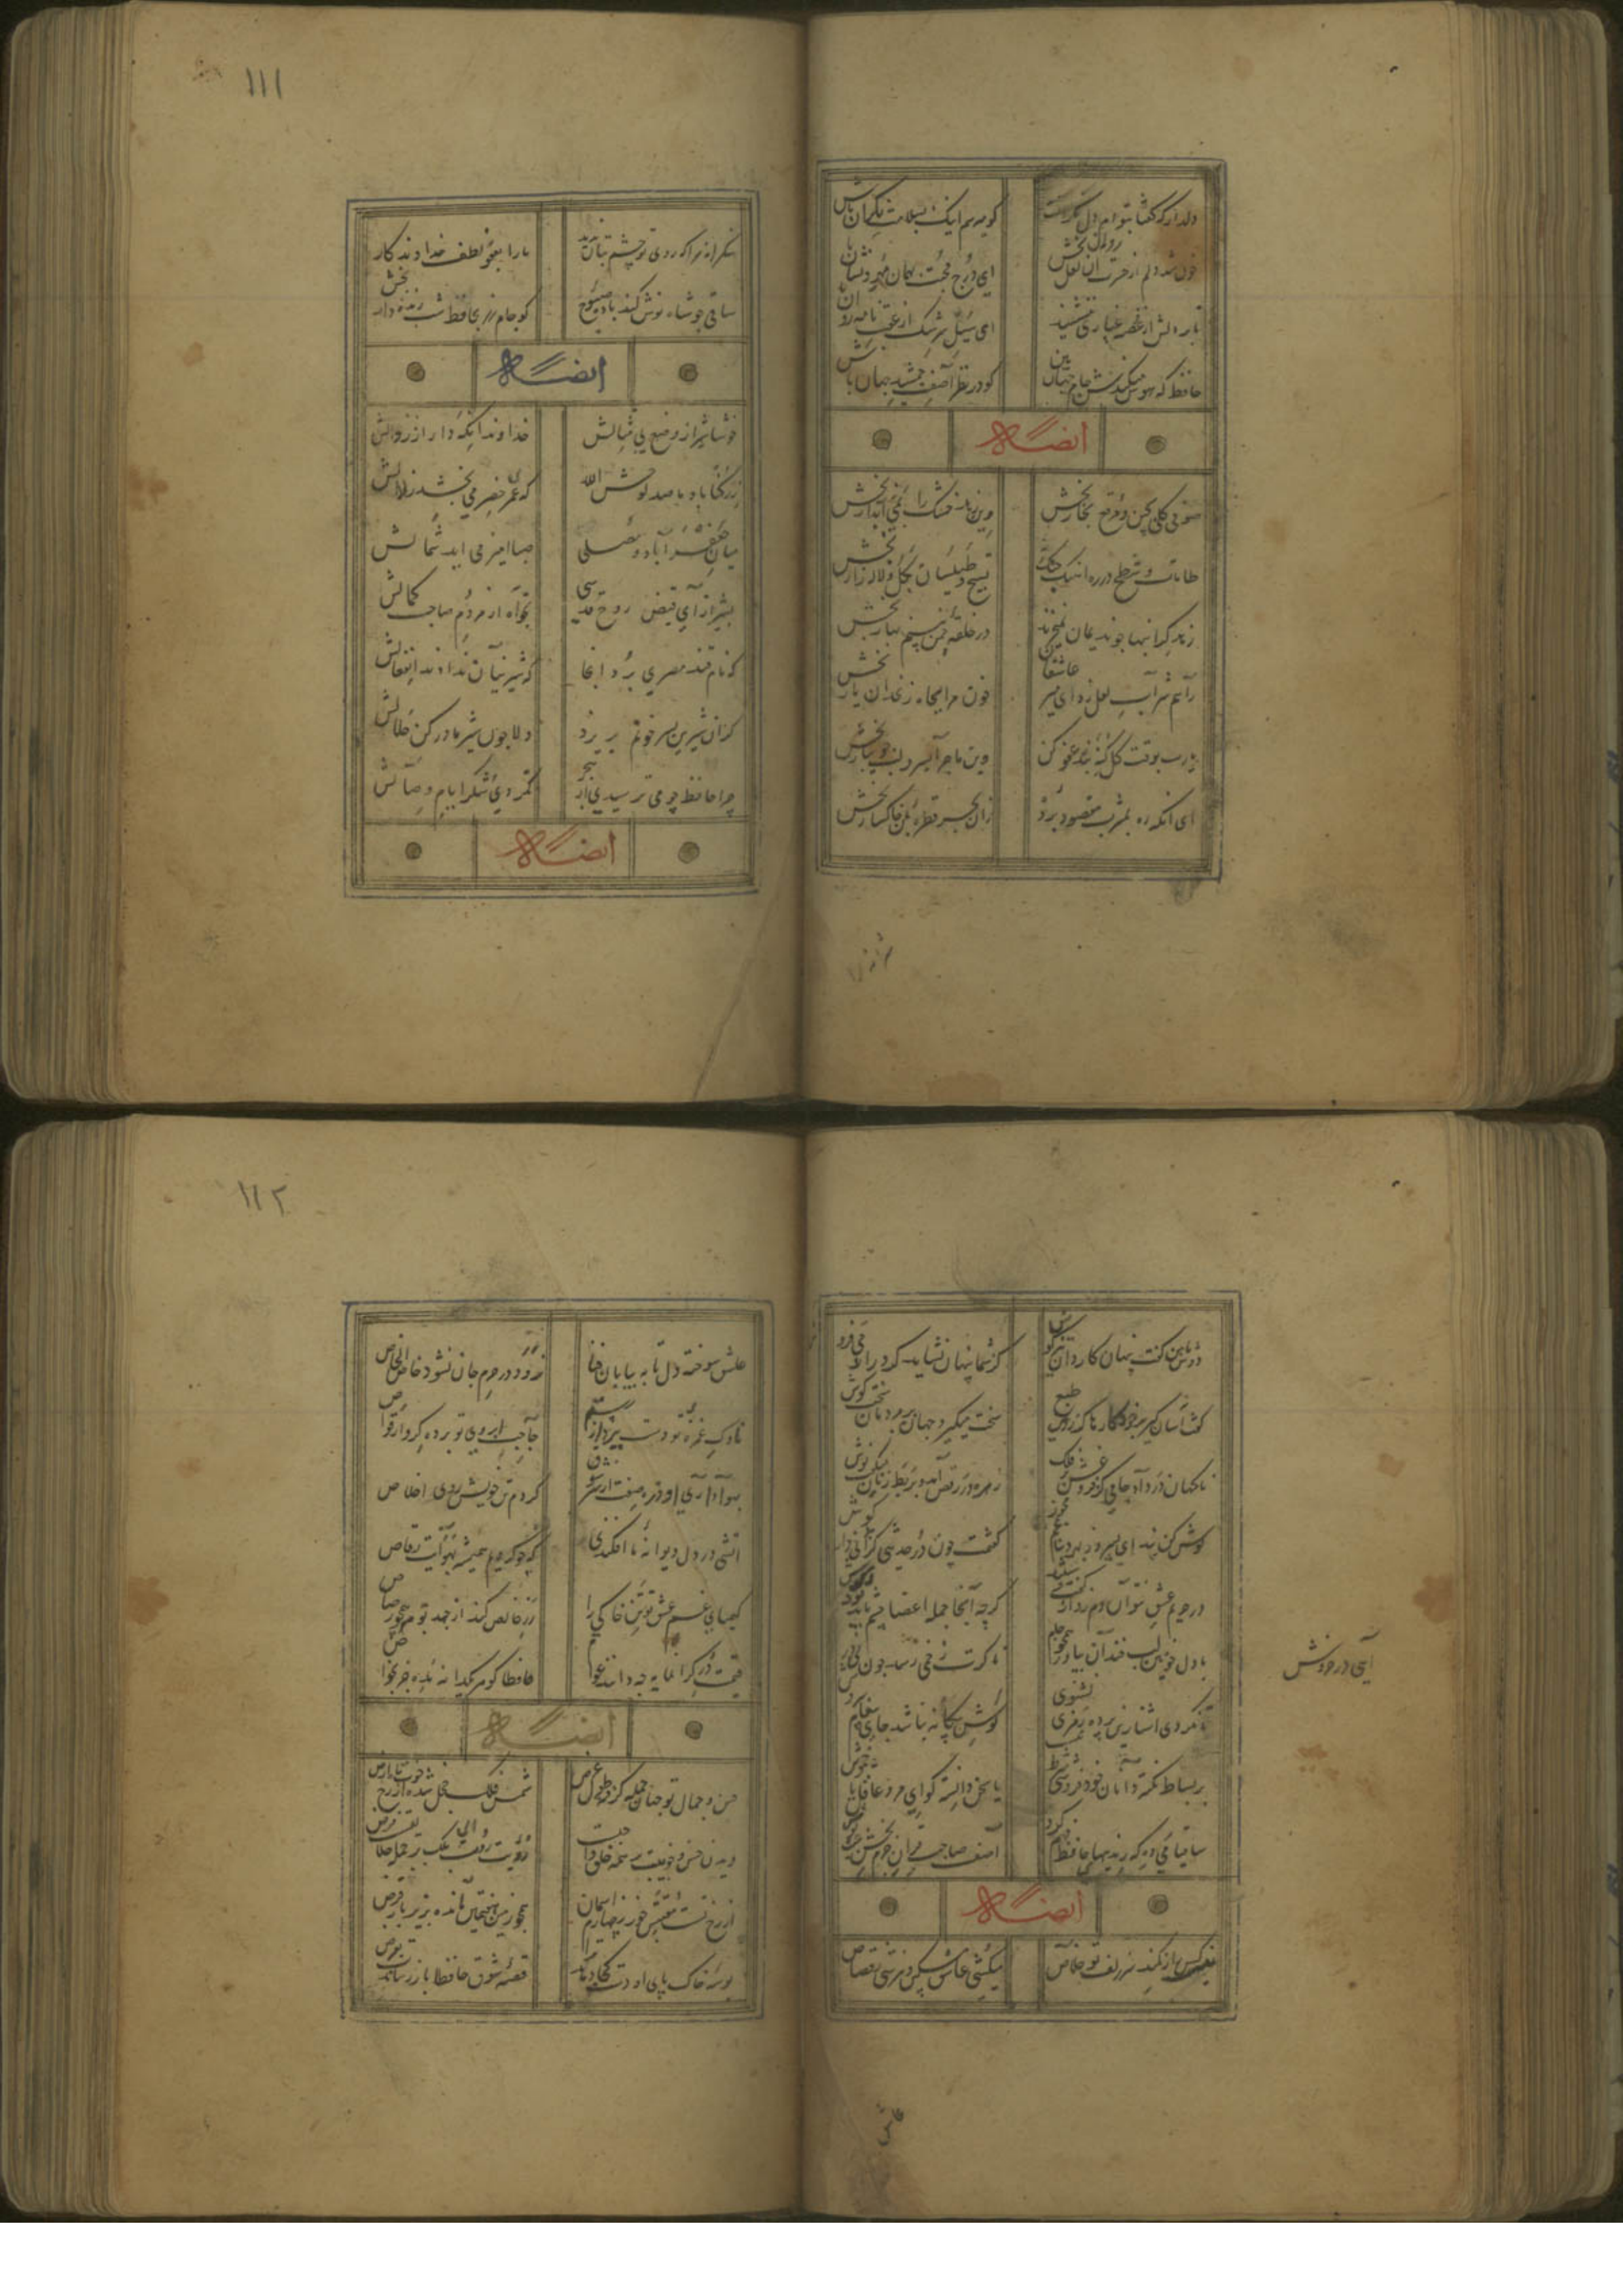 دلدار که گفتا بتوام دل نگرانست
کو میرسم اینک بسلامت نگران باش
خون شد دلم از حسرت آن لعل روان بخش
ای درج محبت بهمان مهر و نشان باش
تا بر دلش از غصه غباری ننشیند
ای سیل سرشک از عقب نامه روان باش
حافظ که هوس میکندش جام جهان بین
کو در نظر آصف جمشید مکان باش
ایضاً له
صوفی گلی بچین و مرقع بخار بخش
وین زهد خشک را بمی خوشگوار بخش
طامات و شطح در ره آهنگ چنگ نه
تسبیح و طیلسان بگل و لاله زار بخش
در حلقه چمن بنسیم بهار بخش
راهم شراب لعل زد ای میر عاشقان
خون مرا بچاه زنخدان یار بخش
یا رب بوقت گل گنه بنده عفو کن
وین ماجرا بسرو لب جویبار بخش
ای آنکه ره بمشرب مقصود برده
زان بحر قطره بمن خاکسار بخش
شکرانه
۱۱۱
شکرانه را که روی تو چشم بتان ندید
ما را بعفو لطف خداوندگار بخش
ساقی چو شاه نوش کند باده صبوح
کو جام زر بحافظ شب زنده دار
ایضاً له
خوشا شیراز و وضع بی مثالش
خداوندا نگه دار از زوالش
ز رکنآباد ما صد لوحش الله
که عمر خضر می بخشد زلالش
میان جعفرآباد و مصلی
صبا آمیز می اید شمالش
بشیراز آی و فیض روح قدسی
بخواه از مردم صاحب کمالش
که نام قند مصری برد آنجا
که شیرینان ندادند انفعالش
گر آن شیرین پسر خونم بریزد
دلا چون شیر مادر کن حلالش
چرا حافظ چو می ترسیدی از هجر
نکردی شکر ایام وصالش
ایضاً له
دوش با من گفت پنهان کاردانی تیز هوش
کز شما پنهان نشاید کرد راز می فروش
گفت آسان گیر بر خود کارها کز روی طبع
سخت میگیرد جهان بر مردمان سخت کوش
زهره در رقص آمد و بربط زنان میگفت نوش
گوش کن پند ای پسر وز بهر دنیا غم مخور
گفتمت چون در حدیثی گر توانی دار گوش
در حریم عشق نتوان دم زد از گفت و شنید
گرچه آنجا جمله اعضا چشم باید بود و گوش
با دل خونین لب خندان بیاور همچو جام
تا نگردی آشنا زین پرده رمزی نشنوی
گوش نامحرم نباشد جای پیغام سروش
بر بساط نکته دانان خود فروشی شرط نیست
یا سخن دانسته گو ای مرد عاقل یا خموش
ساقیا می ده که رندیهای حافظ فهم کرد
آصف صاحب قران جرم بخش عیب پوش
آیی در خروش
ایضاً له
نیست کس را ز کمند سر زلف تو خلاص
میکشی عاشق مسکین و نترسی ز قصاص
عاشق
۱۱۲
عاشق سوخته دل تا به بیابان فنا
نرود در حرم جان نشود خاص الخاص
ناوک غمزه تو دست ببرد از رستم
حاجب ابروی تو برده گرو از وقاص
کردم تن خویش روی اخلاص
آتشی در دل دیوانه ما افکندی
گرچه بودیم همیشه بهوایت رقاص
کیمیای غم عشق تو تن خاکی را
زر خالص کند ار چند بود همچو رصاص
قیمت در گرانمایه چه دانند عوام
حافظا گوهر یکدانه مده جز بخواص
ایضاً له
حسن و جمال تو جهان جمله گرفت طول و عرض
شمس فلک خجل شده از رخ خوب ماه ارض
دیدن حسن و خوبیت بر همه خلق واجب است
رؤیت رویت بلکه بر جمله ملایک فرض
از رخ تست مقتبس خور ز چهارم آسمان
همچو زمین هفتمین مانده بزیر بار قرض
بوسه خاک پای او دست کجا دهد ترا
قصه شوق حافظا باز رساندت بعرض